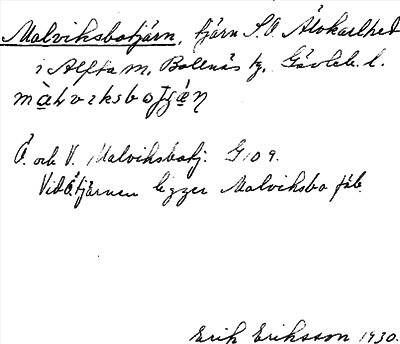 Malviksbotjärn, tjärn S.O. Älvkarlhed
i Alfta sn, Bollnäs tg, Gävleb. l.
Ö. och V. Malviksbotj. G 109.
Vid Ö. tjärnen ligger Malviksbo fäb.
Erik Eriksson 1930.